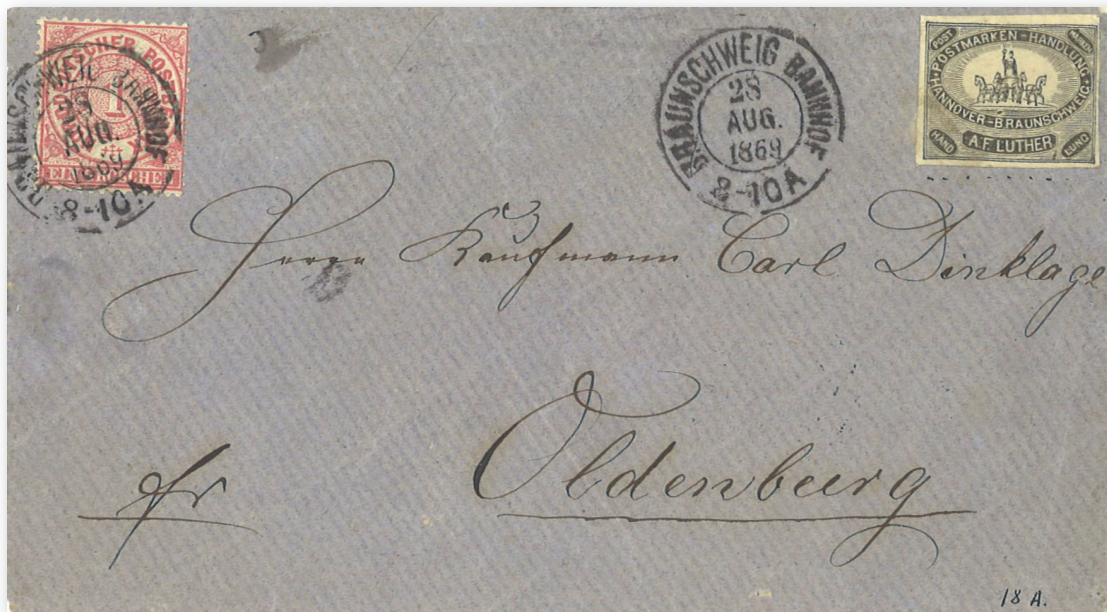 NORDDEUTSCHER POSTBEZIRK
1
EIN GROSCHEN
BRAUNSCHWEIG BAHNHOF
28
AUG.
1869
8-10A
BRAUNSCHWEIG BAHNHOF
28
AUG.
1869
8-10A
POST MARKEN
POSTMARKEN-HANDLUNG
HANNOVER-BRAUNSCHWEIG
HAND LUNG
A.F. LUTHER
Herrn Kaufmann Carl Dinklage
fr Oldenburg
18 A.